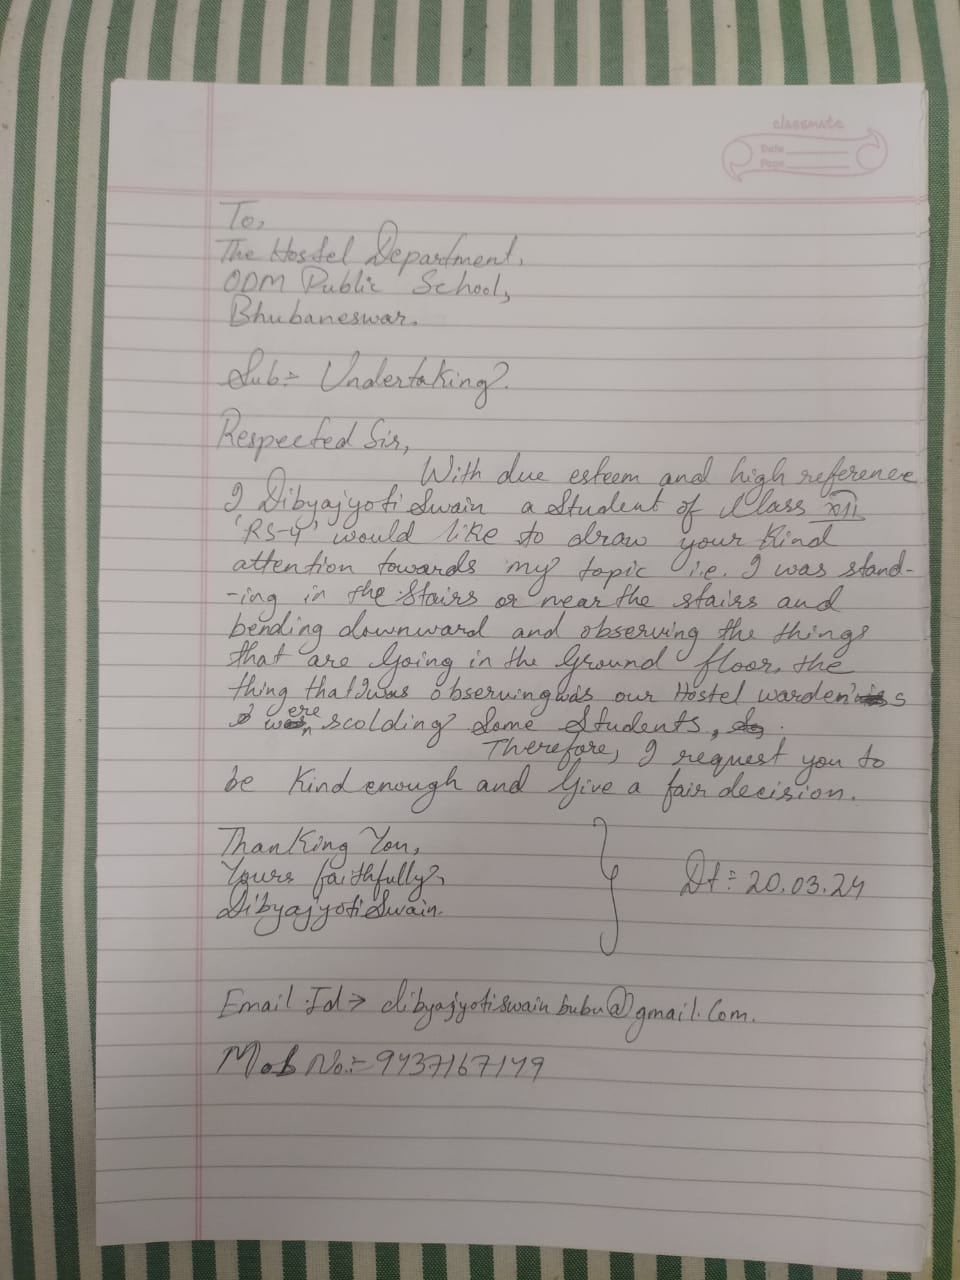 classmate
Date
Page
To,
The Hostel Department,
ODM Public School,
Bhubaneswar.
Sub:- Undertaking.
Respected Sir,
With due esteem and high reference
I Dibyajyoti Swain a Student of Class XII
'RS-4' would like to draw your kind
attention towards my topic i.e. I was stand-
-ing in the stairs or near the stairs and
bending downward and observing the things
that are Going in the Ground floor, the
thing that I was observing was our Hostel warden's
were scolding Some Students,
Therefore, I request you to
be kind enough and Give a fair decision.
Thanking You,
Yours faithfully,
Dibyajyoti Swain.
Dt:- 20.03.24
Email Id → dibyajyotiswain.bubu@gmail.Com.
Mob No.:- 9437167149